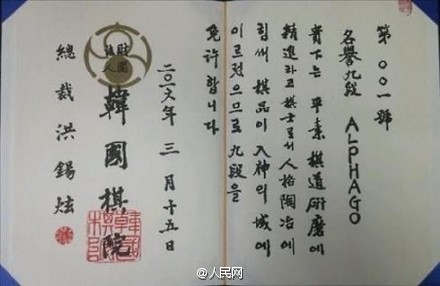 第〇〇一號
名譽九段 ALPHAGO
貴下는 平素 棋道 硏磨에
精進하고 棋士로서 人格陶冶에
힘써 棋品이 入神의 域에
이르렀으므로 九段을
免許합니다
二〇一六年 三月十五日
財團法人 韓國棋院
總裁 洪錫炫
@人民网